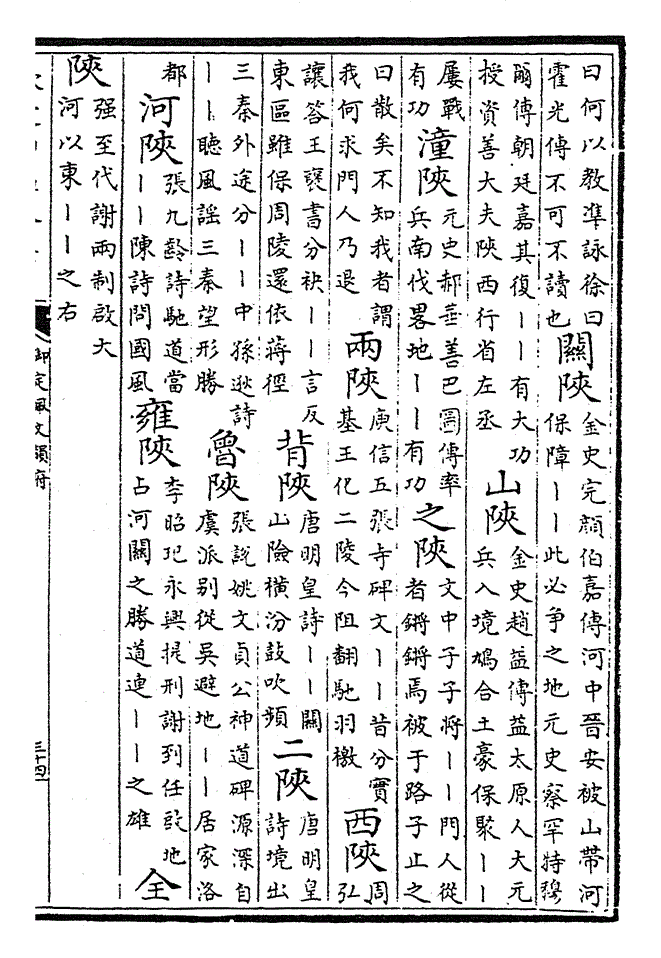 曰何以教準詠徐曰
霍光傳不可不讀也
關陜
金史完顔伯嘉傳河中晉安被山帶河
保障丨丨此必争之地元史察罕特穆
爾傳朝廷嘉其復丨丨有大功
授資善大夫陜西行省左丞
山陜
金史趙益傳益太原人大元
兵入境鳩合土豪保聚丨丨
屢戰
有功
潼陜
元史郝華善巴圖傳率
兵南伐畧地丨丨有功
之陜
文中子子將丨丨門人從
者鏘鏘焉被于路子止之
曰散矣不知我者謂
我何求門人乃退
兩陜
庾信五張寺碑文丨丨昔分實
基王化二陵今阻翻馳羽檄
西陜
周
弘
讓答王褒書分袂丨丨言反
東區雖保周陵還依蔣徑
背陜
唐明皇詩丨丨關
山險横汾鼓吹頻
二陜
唐明皇
詩境出
三秦外途分丨丨中孫逖詩
丨丨聽風謡三秦望形勝
魯陜
張說姚文貞公神道碑源深自
虞派别從吳避地丨丨居家洛
都
河陜
張九齡詩馳道當
丨丨陳詩問國風
雍陜
李昭玘永興提刑謝到任啟地
占河關之勝道連丨丨之雄
全
陜
强至代謝兩制啟大
河以東丨丨之右
御定佩文韻府
三十四